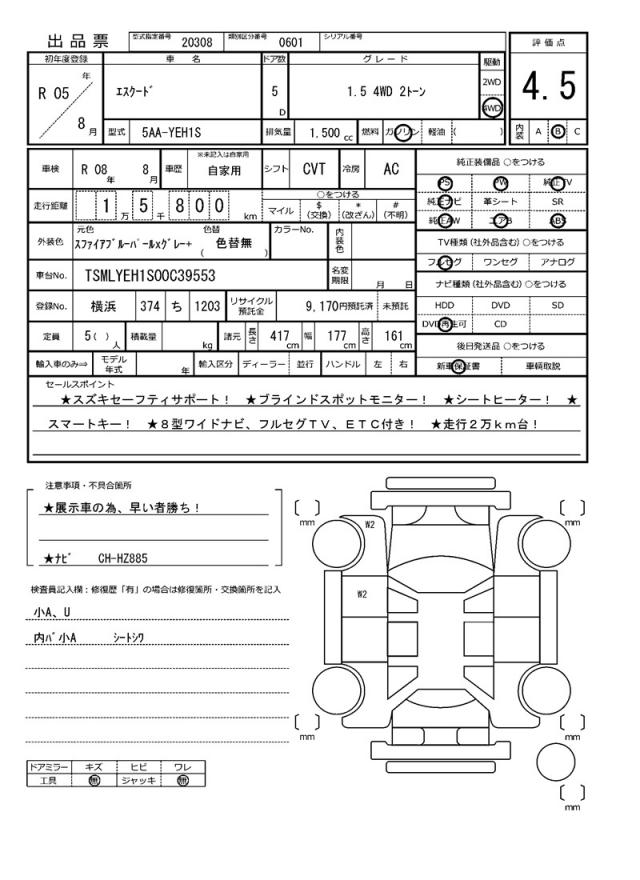 出品票 型式指定番号 20308 類別区分番号 0601 シリアル番号
評価点
4.5
内装 A B C
初年度登録 車名 ドア数 グレード 駆動
R 05 年 8 月 エスクード 5 D 1.5 4WD 2トーン 2WD 4WD
型式 5AA-YEH1S 排気量 1.500 cc 燃料 ガソリン 軽油 ( )
車検 R 08 年 8 月 車歴 ※未記入は自家用 自家用 シフト CVT 冷房 AC
走行距離 1 万 5 千 8 0 0 km ○をつける マイル $ (交換) * (改ざん) # (不明)
外装色 元色 スファイアブルーパールxグレー+ 色替 ( 色替無 ) カラーNo. 内装色
車台No. TSMLYEH1S00C39553 名変期限 月 日
登録No. 横浜 374 ち 1203 リサイクル預託金 9,170円預託済 未預託
定員 5 ( ) 人 積載量 kg 諸元 長さ 417 cm 幅 177 cm 高さ 161 cm
輸入車のみ⇒ モデル年式 年 輸入区分 ディーラー 並行 ハンドル 左 右
純正装備品 ○をつける
PS PW 純正TV
純正ナビ 革シート SR
純正AW エアB ABS
TV種類 (社外品含む) ○をつける
フルセグ ワンセグ アナログ
ナビ種類 (社外品含む) ○をつける
HDD DVD SD
DVD再生可 CD
後日発送品 ○をつける
新車保証書 車輌取説
セールスポイント
★スズキセーフティサポート! ★ブラインドスポットモニター! ★シートヒーター! ★
スマートキー! ★8型ワイドナビ、フルセグTV、ETC付き! ★走行2万km台!
注意事項・不具合箇所
★展示車の為、早い者勝ち!
★ナビ CH-HZ885
検査員記入欄:修復歴「有」の場合は修復箇所・交換箇所を記入
小A、U
内バ小A シートシワ
ドアミラー キズ ヒビ ワレ
工具 無 ジャッキ 無
mm
mm
W2
W2
mm
mm
mm